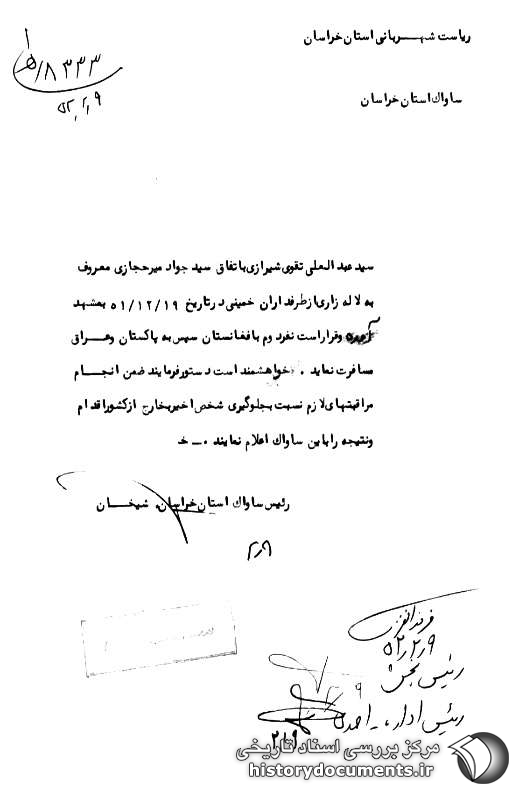 ریاست شهربانی استان خراسان
۱۸۳۳۳/ه‍ ۱
۵۲٫۲٫۹
ساواک استان خراسان
سید عبدالعلی تقوی شیرازی باتفاق سید جواد میرحجازی معروف
به لاله زاری از طرفداران خمینی در تاریخ ۵۱/۱۲/۱۹ بمشهد
آمده و قرار است نفر دوم بافغانستان سپس به پاکستان و عراق
مسافرت نماید . خواهشمند است دستور فرمایند ضمن انجام
مراقبتهای لازم نسبت بجلوگیری شخص اخیر بخارج از کشور اقدام
و نتیجه را باین ساواک اعلام نمایند ./ـ خ
رئیس ساواک استان خراسان. شیخان
۲٫۹
۵۲٫۲٫۹
رئیس بخش
رئیس اداره ـ احمدی
۲٫۹
مرکز بررسی اسناد تاریخی
historydocuments.ir